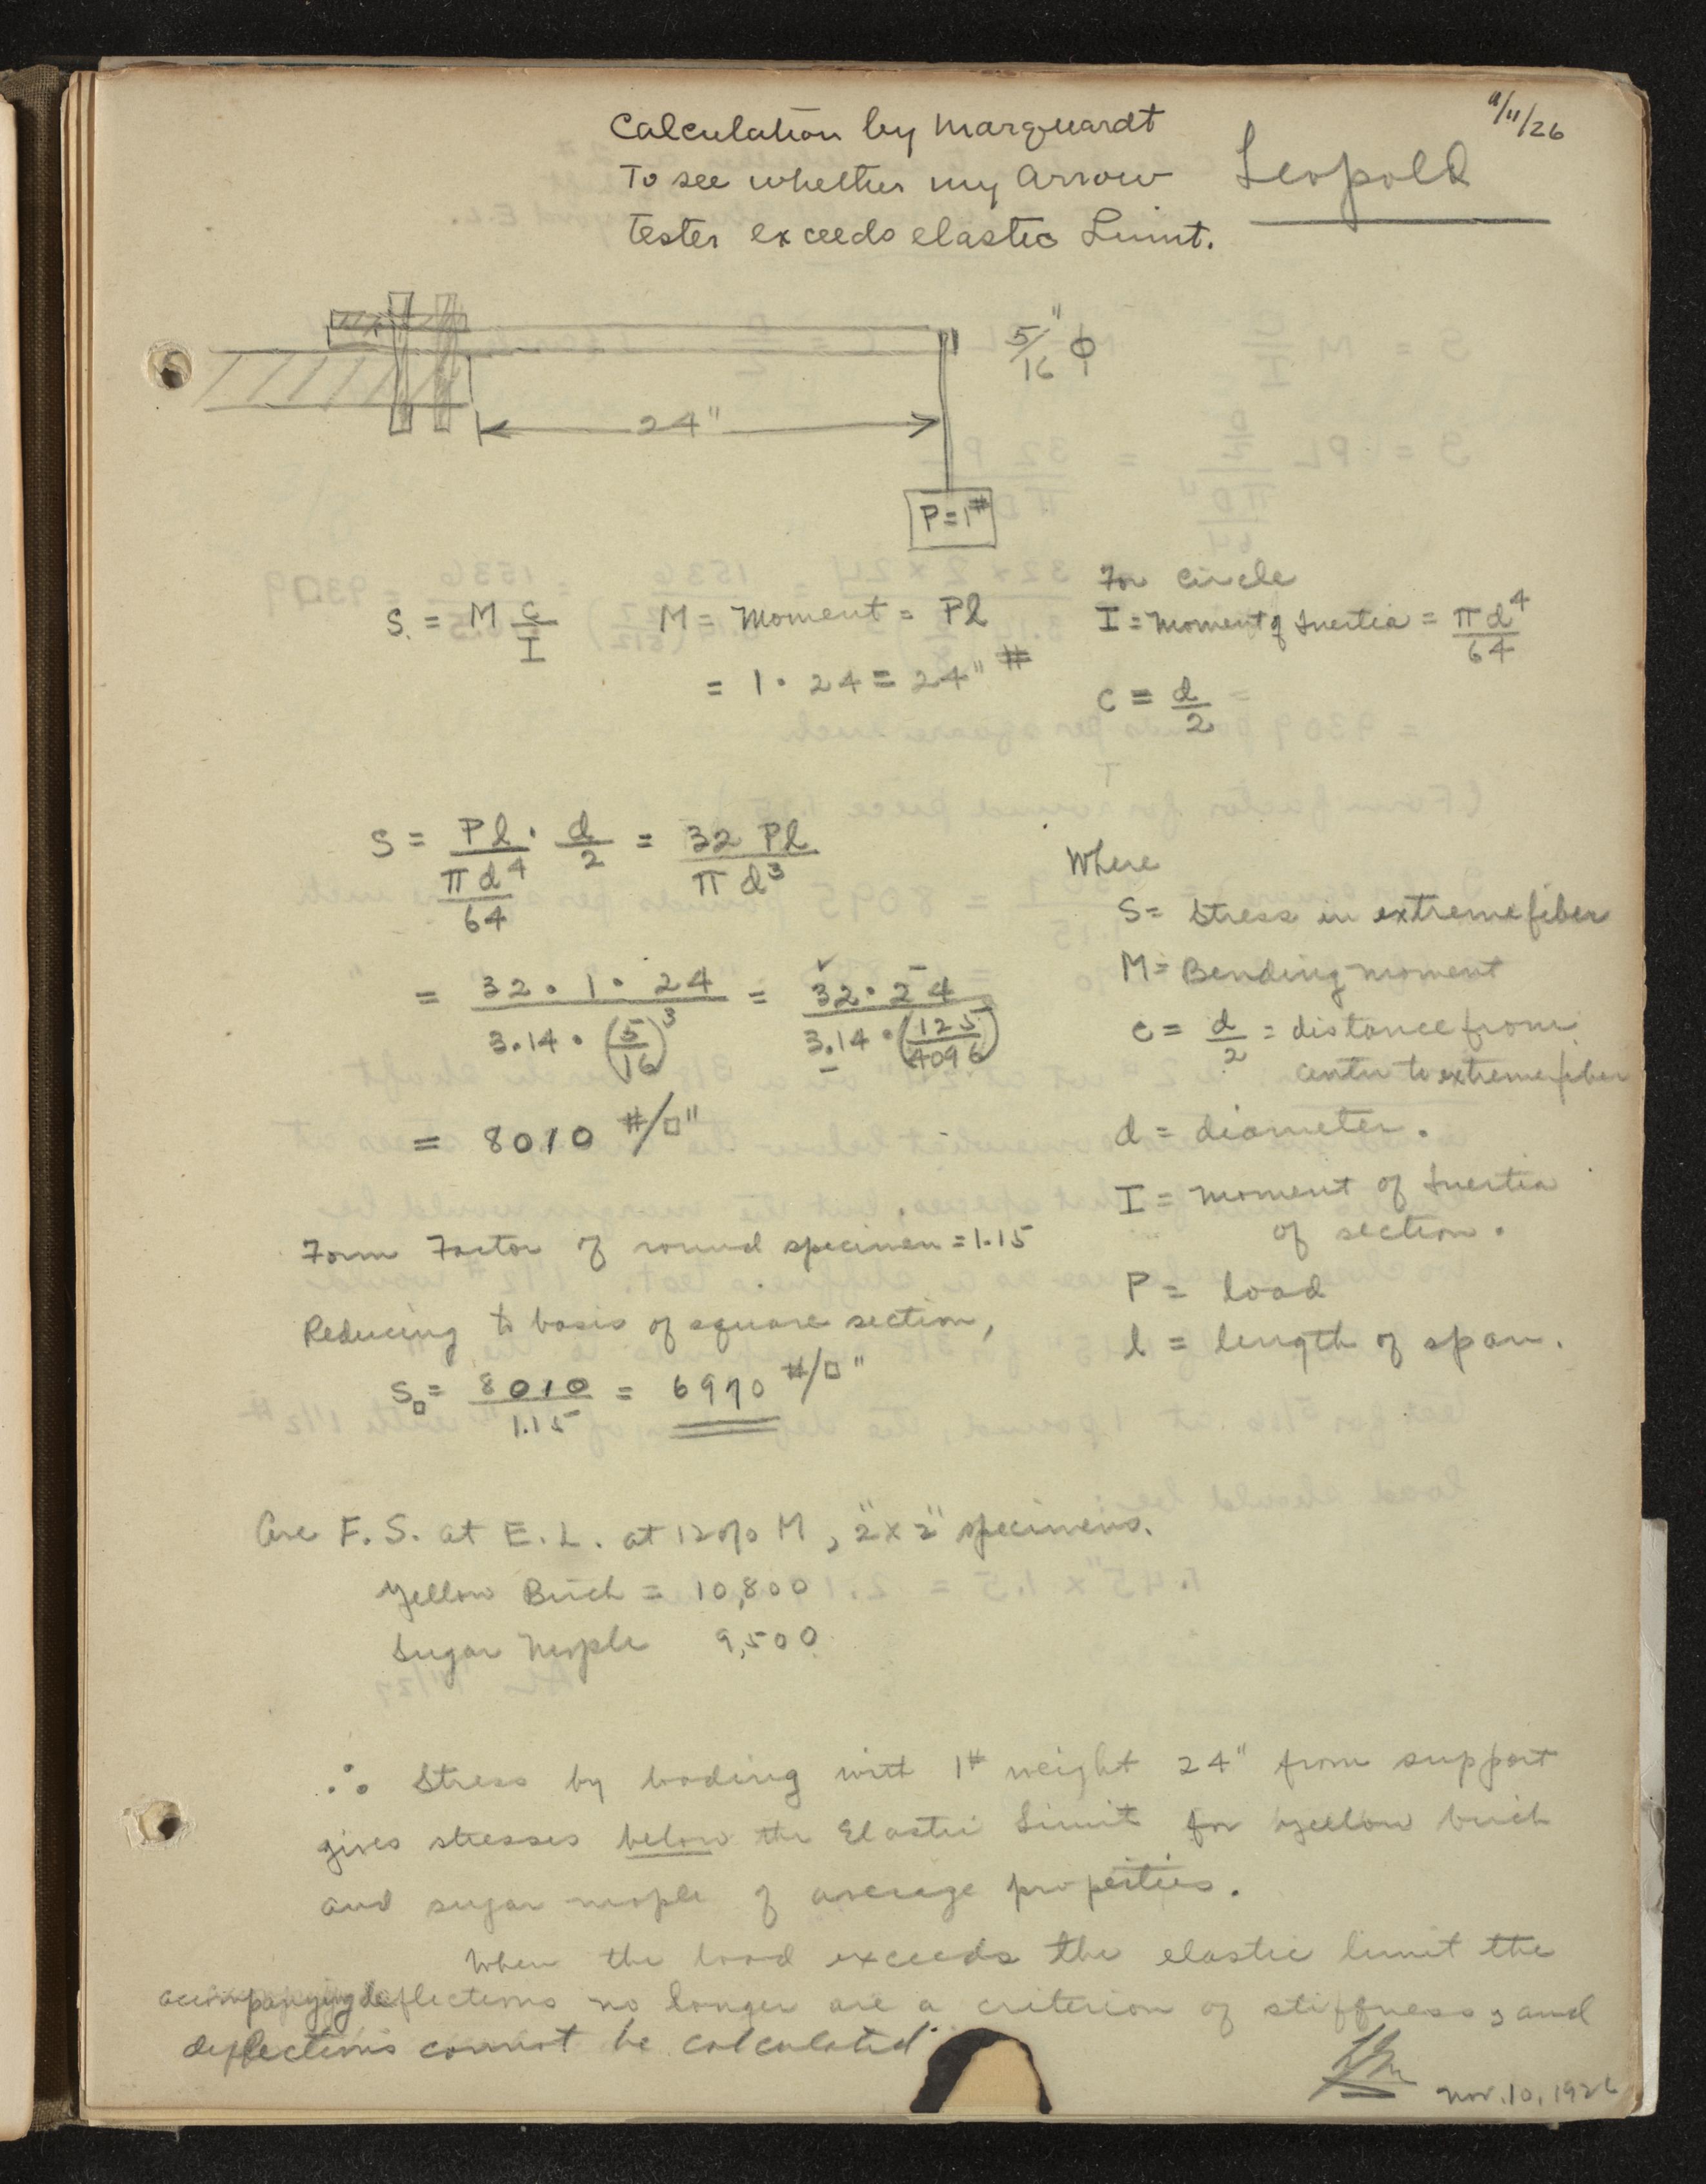 11/11/26
Calculation by Marquardt
To see whether my Arrow
Tester exceeds elastic Limit.
Leopold
5/16" ϕ
24"
P=1#
S = M c/I
M = Moment = Pl
= 1 · 24 = 24"#
For circle
I = Moment of Inertia = πd⁴/64
c = d/2
S = Pl/(πd⁴/64) · d/2 = 32 Pl/πd³
= 32 · 1 · 24/3.14 · (5/16)³ = 32 · 24/3.14 · (125/4096)
= 8010 #/□"
Where
S = Stress in extreme fiber
M = Bending moment
c = d/2 = distance from
center to extreme fiber
d = diameter.
I = Moment of Inertia
of section.
P = load
l = length of span.
Form Factor of round specimen = 1.15
Reducing to basis of square section,
S□ = 8010/1.15 = 6970 #/□"
Ave F. S. at E. L. at 12% M, 2" x 2" specimens.
Yellow Birch = 10,800
Sugar Maple 9,500
∴ Stress by loading with 1# weight 24" from support
gives stresses below the Elastic Limit for yellow birch
and sugar maple of average properties.
When the load exceeds the elastic limit the
accompanying deflections no longer are a criterion of stiffness, and
deflections cannot be calculated.
Nov. 10, 1926